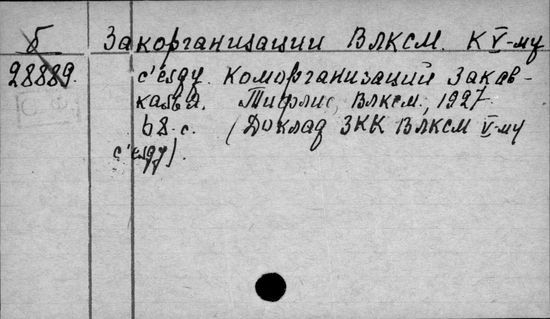 б Закорганизации ВЛКСМ. К V-му
28889. с'езду Коморганизаций Закав-
казья. Тифлис, Влксм, 1927.
68 с. (Доклад ЗКК ВЛКСМ V-му
с'езду).